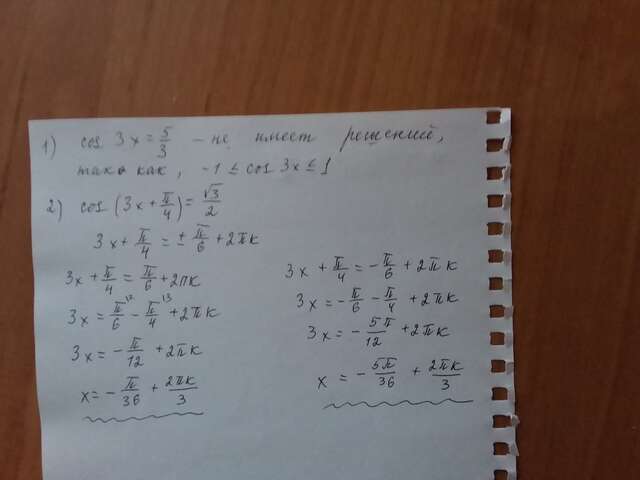 1) cos 3x = 5/3 – не имеет решений,
тако как, -1 ≤ cos 3x ≤ 1
2) cos (3x + π/4) = √3/2
3x + π/4 = ± π/6 + 2πк
3x + π/4 = π/6 + 2πк
3x = π/6 - π/4 + 2πк
3x = - π/12 + 2πк
x = - π/36 + 2πк/3
3x + π/4 = - π/6 + 2πк
3x = - π/6 - π/4 + 2πк
3x = - 5π/12 + 2πк
x = - 5π/36 + 2πк/3